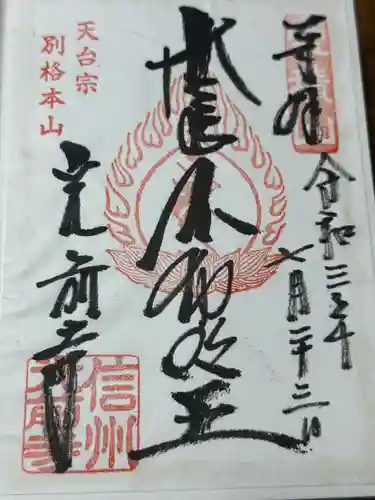 奉拝
令和三年七月二十三日
不動明王
天台宗
別格本山
光前寺
信州
光前寺